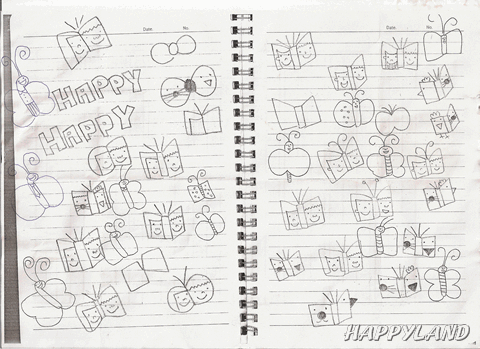 Date. No.
HAPPY
HAPPY
Date. No.
HAPPYLAND